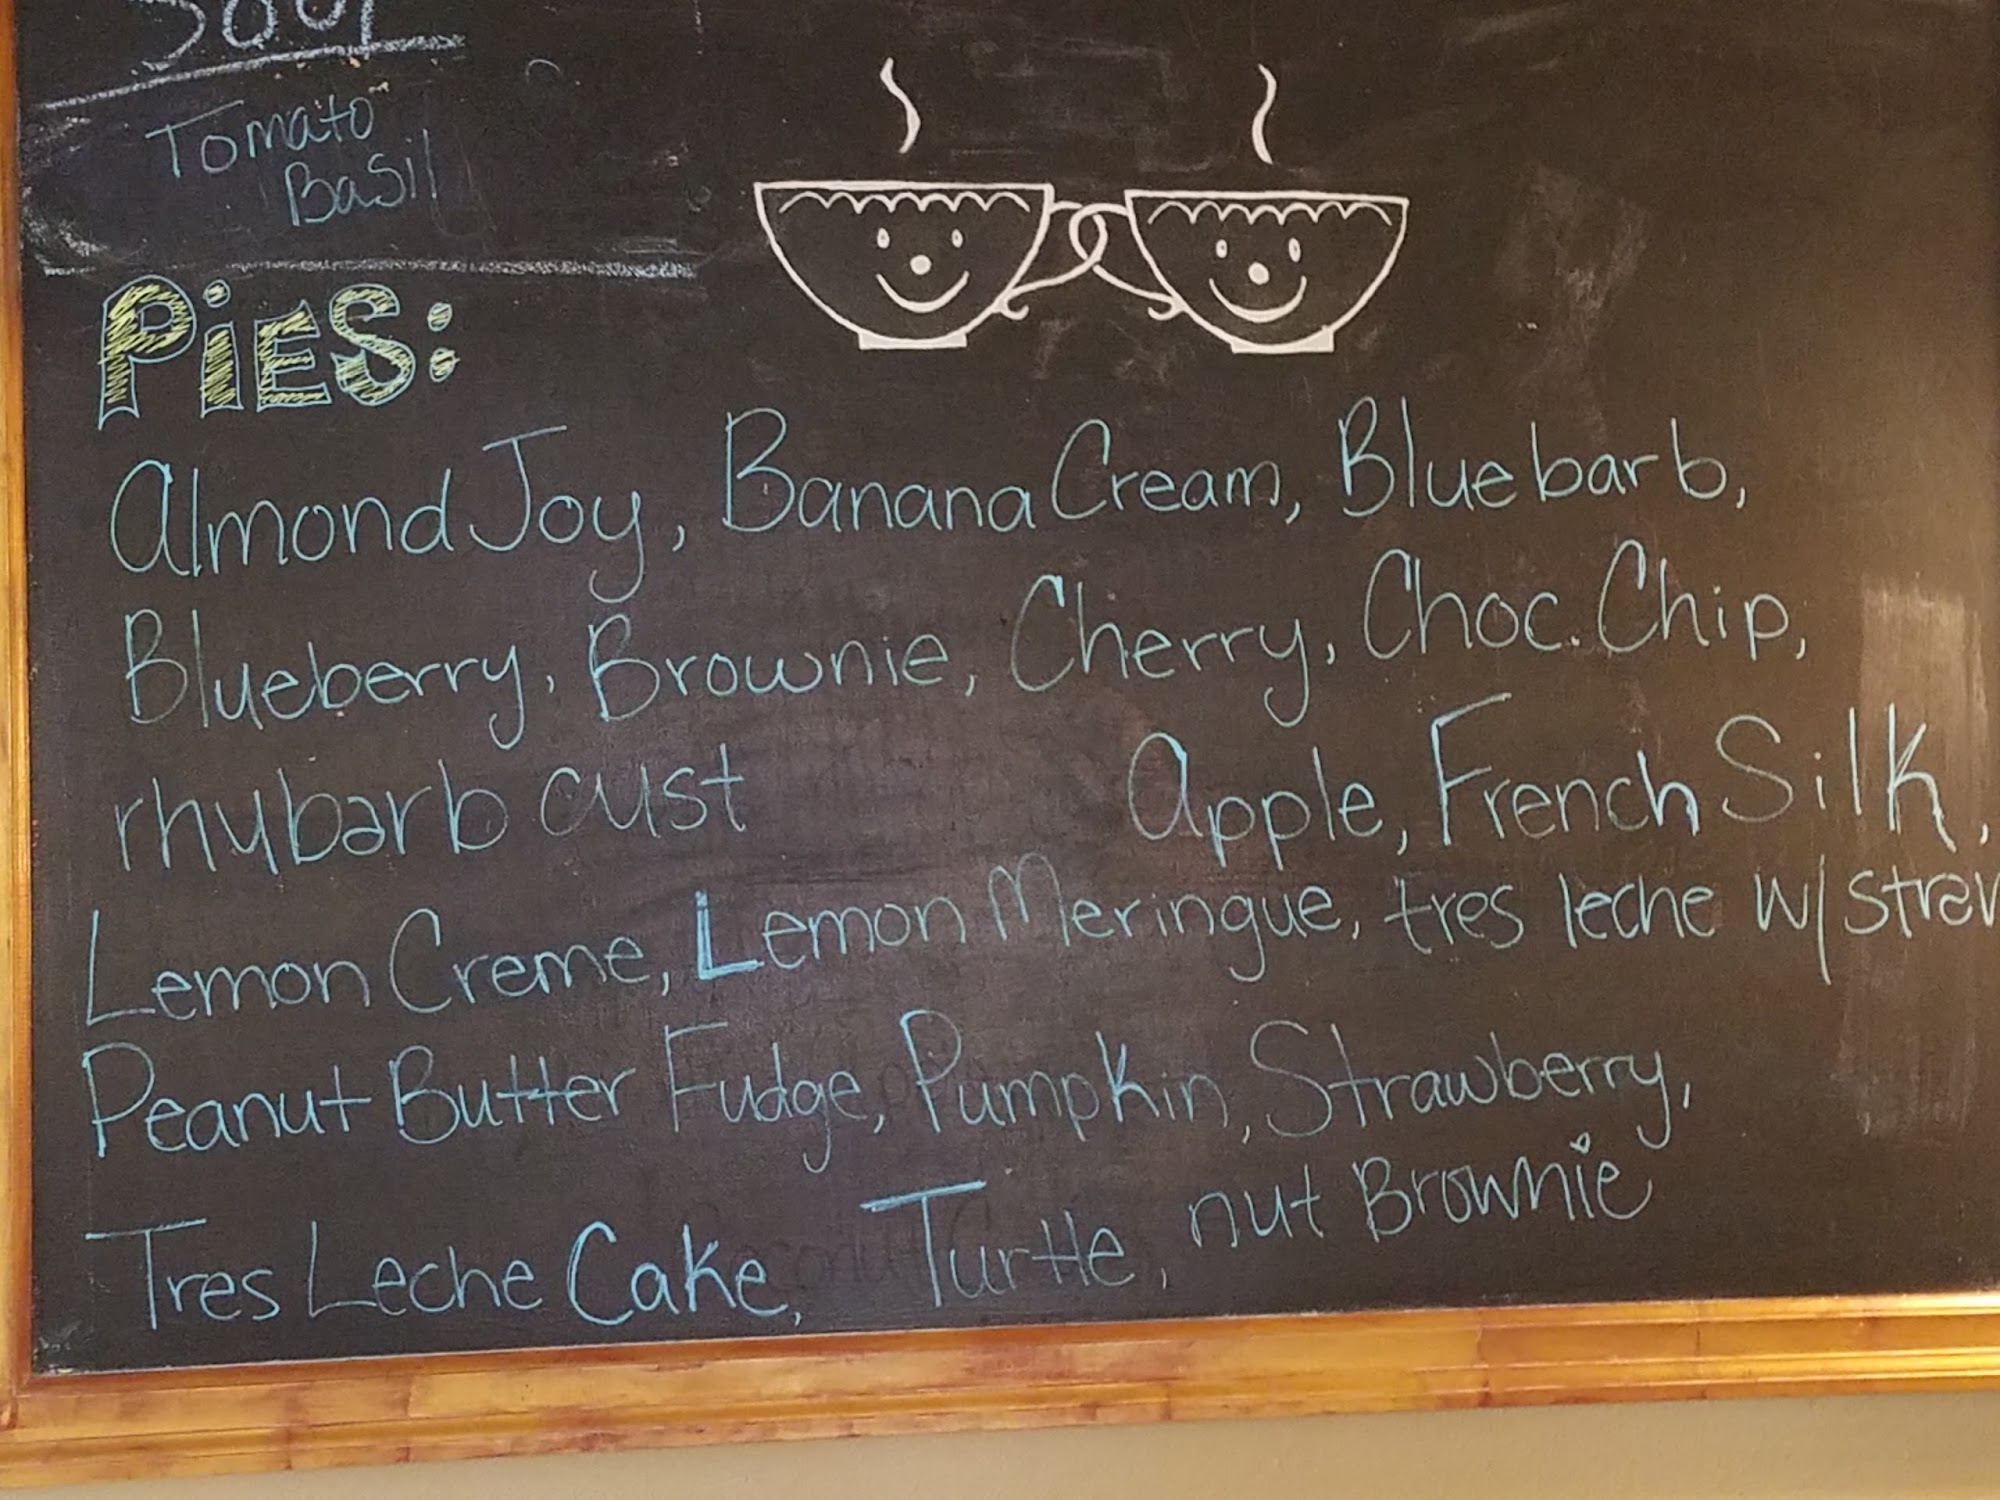 Soup
Tomato
Basil
PiES:
Almond Joy, Banana Cream, Bluebarb,
Blueberry, Brownie, Cherry, Choc. Chip,
rhubarb cust Apple, French Silk,
Lemon Creme, Lemon Meringue, tres leche w/ straw
Peanut Butter Fudge, Pumpkin, Strawberry,
Tres Leche Cake, Turtle, nut Brownie